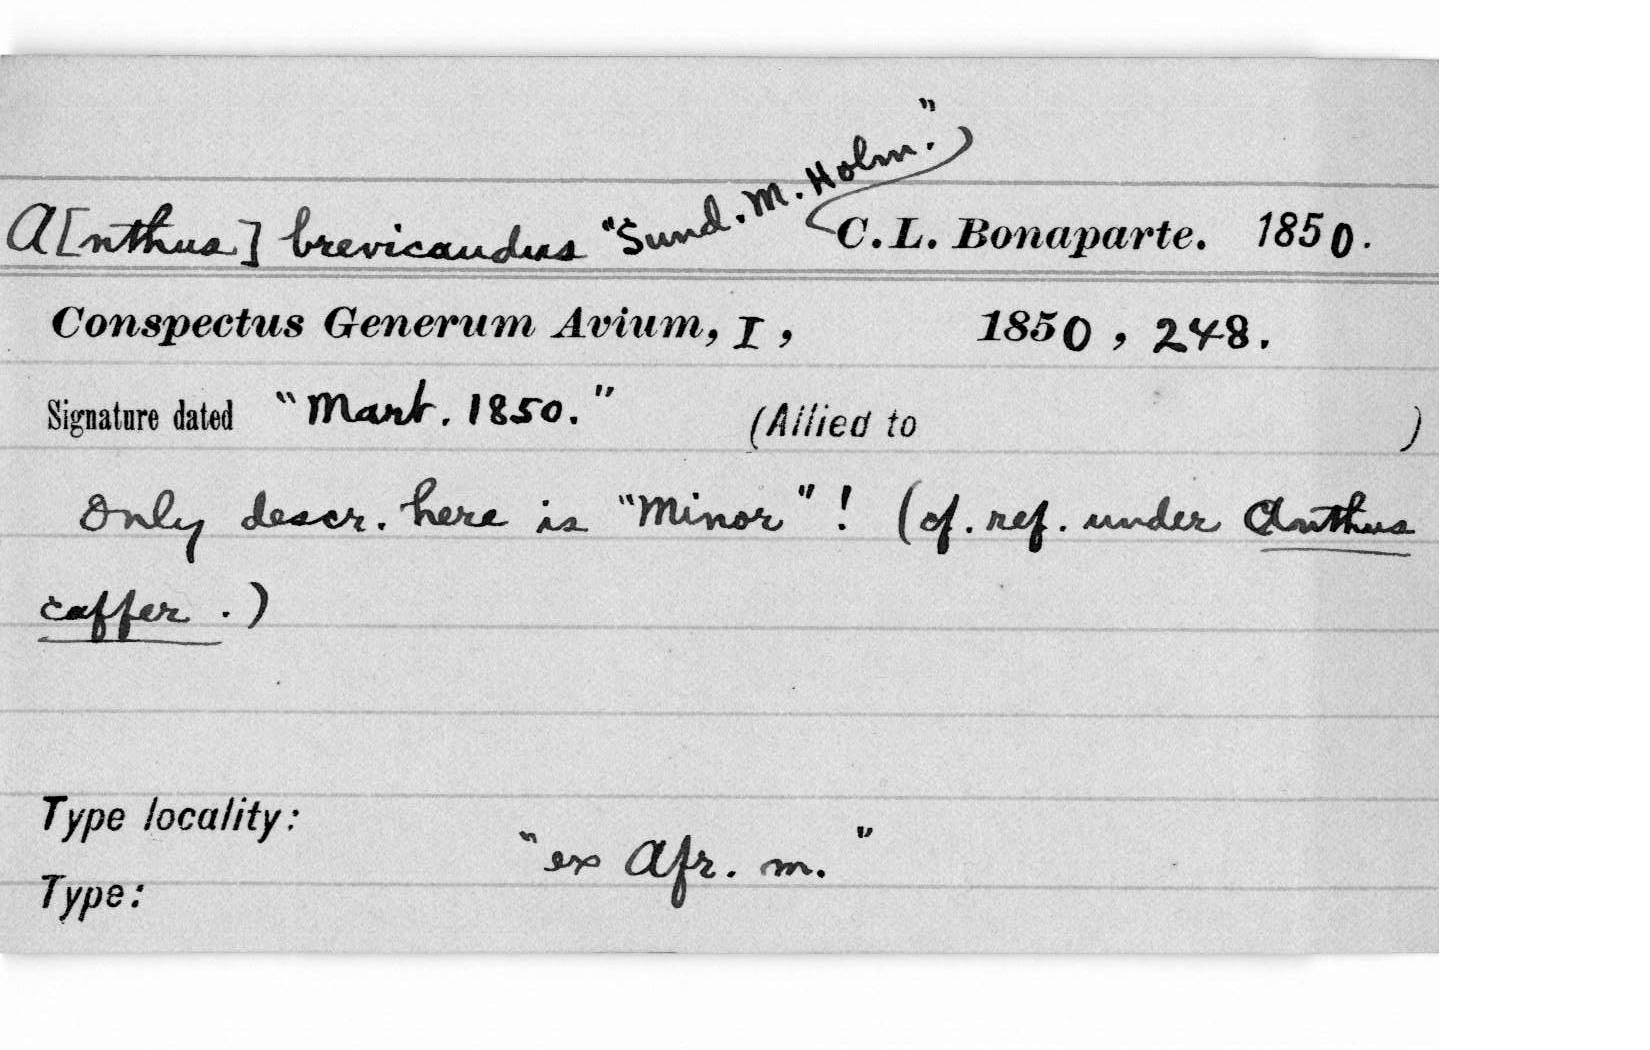 A[nthus] brevicaudus "Sund. M. Holm." C. L. Bonaparte. 1850.
Conspectus Generum Avium, I, 1850, 248.
Signature dated "Mart. 1850." (Allied to )
Only descr. here is "Minor"! (cf. ref. under Anthus
caffer.)
Type locality:
"ex Afr. m."
Type: